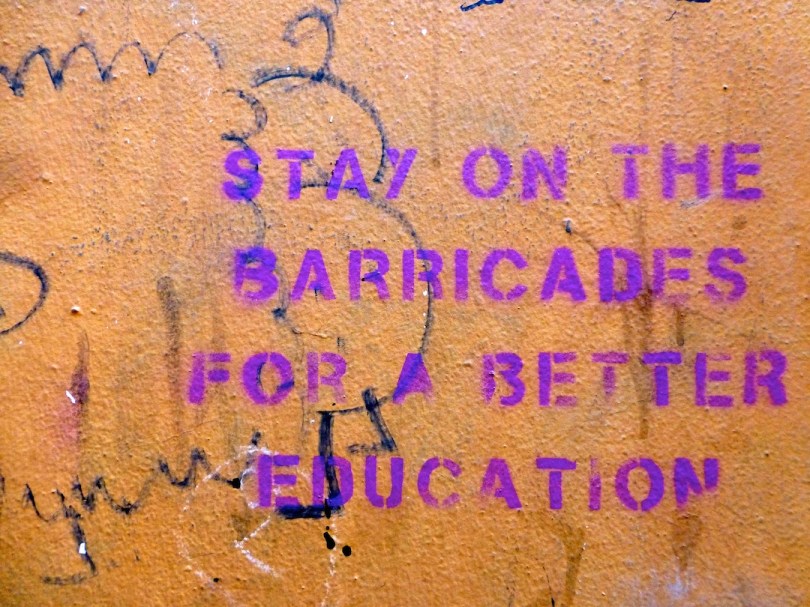 STAY ON THE
BARRICADES
FOR A BETTER
EDUCATION